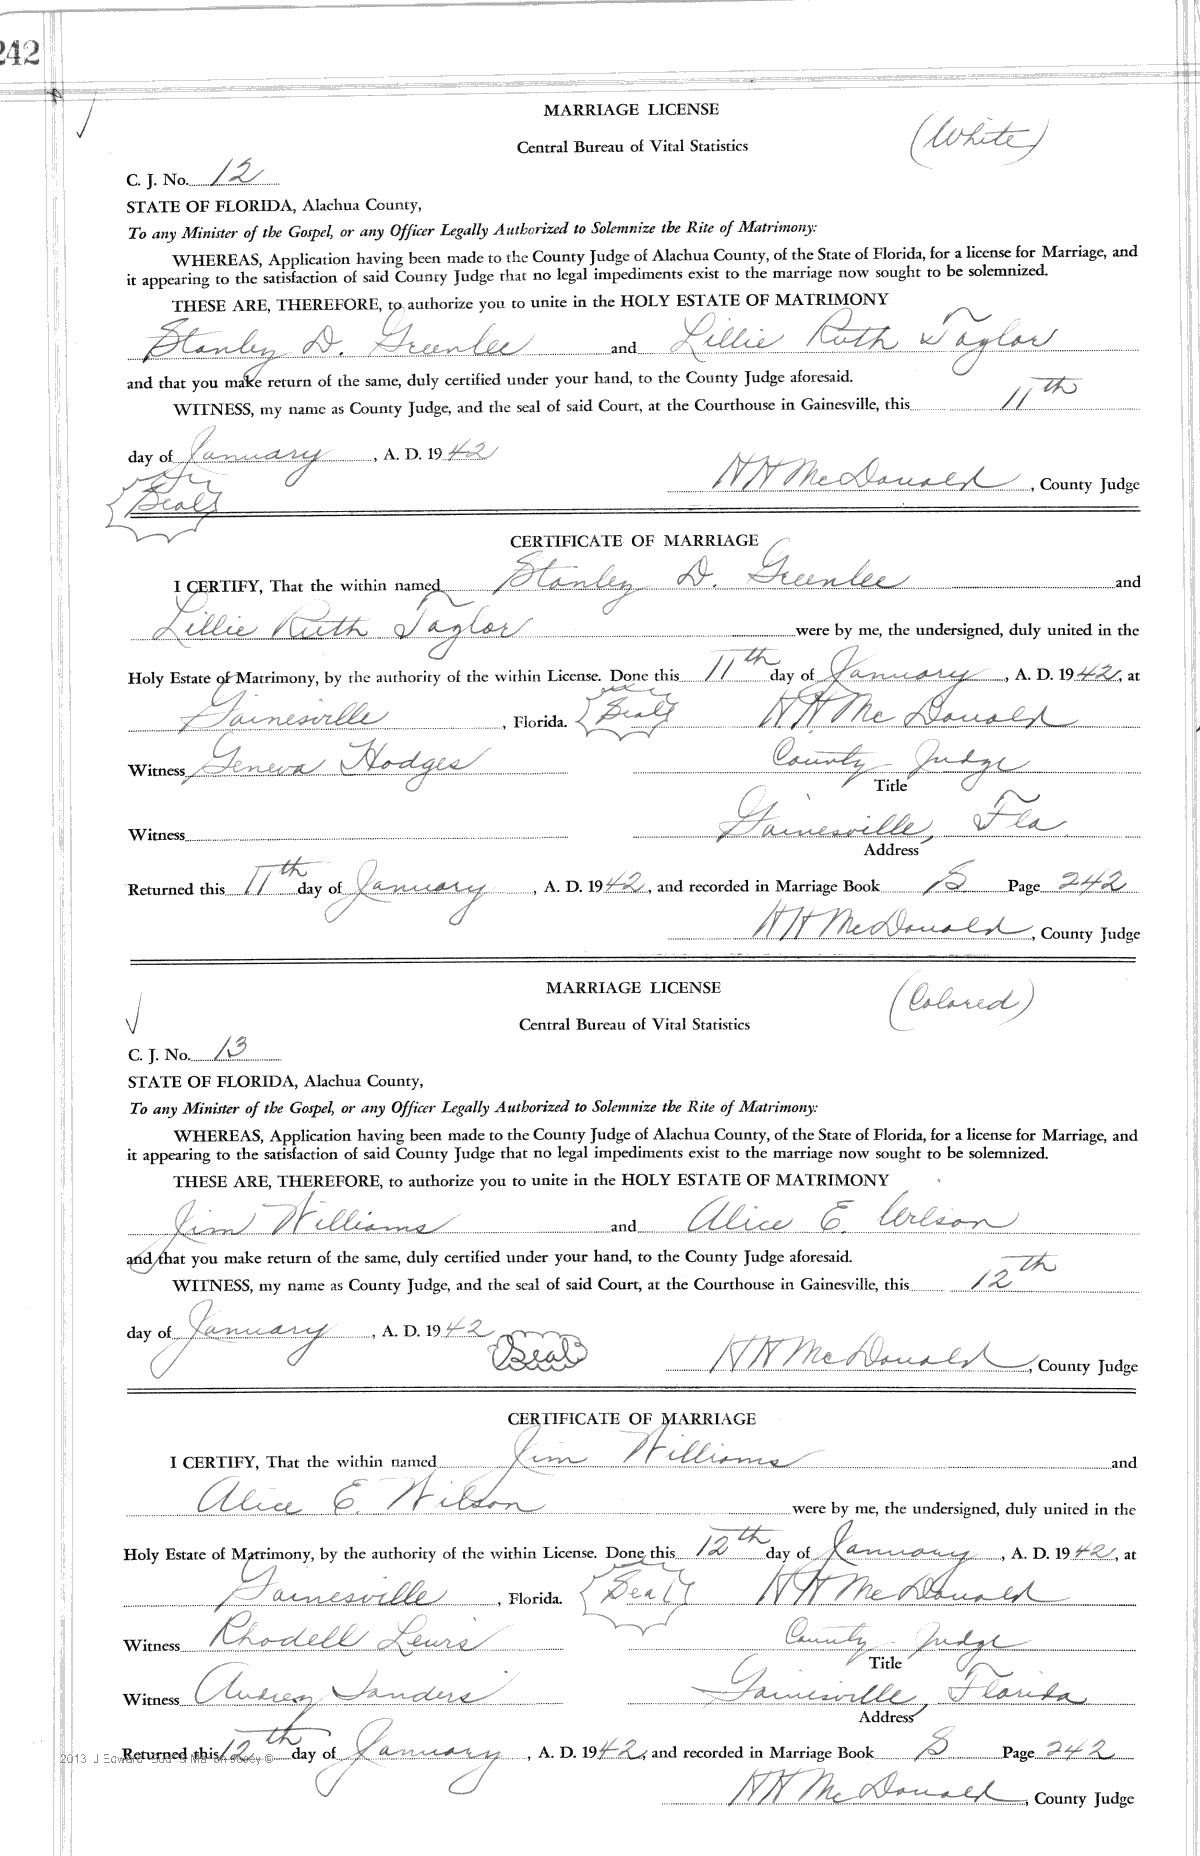 242
MARRIAGE LICENSE
(White)
Central Bureau of Vital Statistics
C. J. No. 12
STATE OF FLORIDA, Alachua County,
To any Minister of the Gospel, or any Officer Legally Authorized to Solemnize the Rite of Matrimony:
WHEREAS, Application having been made to the County Judge of Alachua County, of the State of Florida, for a license for Marriage, and
it appearing to the satisfaction of said County Judge that no legal impediments exist to the marriage now sought to be solemnized.
THESE ARE, THEREFORE, to authorize you to unite in the HOLY ESTATE OF MATRIMONY
Stanley D. Greenlee and Lillie Ruth Taylor
and that you make return of the same, duly certified under your hand, to the County Judge aforesaid.
WITNESS, my name as County Judge, and the seal of said Court, at the Courthouse in Gainesville, this 11th
day of January, A. D. 1942
H H McDonald, County Judge
Seal
CERTIFICATE OF MARRIAGE
I CERTIFY, That the within named Stanley D. Greenlee and
Lillie Ruth Taylor were by me, the undersigned, duly united in the
Holy Estate of Matrimony, by the authority of the within License. Done this 11th day of January, A. D. 1942, at
Gainesville, Florida. Seal H H McDonald
Witness Geneva Hodges County Judge
Title
Witness Gainesville, Fla
Address
Returned this 11th day of January, A. D. 1942, and recorded in Marriage Book S Page 242
H H McDonald, County Judge
MARRIAGE LICENSE
(Colored)
Central Bureau of Vital Statistics
C. J. No. 13
STATE OF FLORIDA, Alachua County,
To any Minister of the Gospel, or any Officer Legally Authorized to Solemnize the Rite of Matrimony:
WHEREAS, Application having been made to the County Judge of Alachua County, of the State of Florida, for a license for Marriage, and
it appearing to the satisfaction of said County Judge that no legal impediments exist to the marriage now sought to be solemnized.
THESE ARE, THEREFORE, to authorize you to unite in the HOLY ESTATE OF MATRIMONY
Jim Williams and Alice E. Wilson
and that you make return of the same, duly certified under your hand, to the County Judge aforesaid.
WITNESS, my name as County Judge, and the seal of said Court, at the Courthouse in Gainesville, this 12th
day of January, A. D. 1942
Seal H H McDonald, County Judge
CERTIFICATE OF MARRIAGE
I CERTIFY, That the within named Jim Williams and
Alice E. Wilson were by me, the undersigned, duly united in the
Holy Estate of Matrimony, by the authority of the within License. Done this 12th day of January, A. D. 1942, at
Gainesville, Florida. Seal H H McDonald
Witness Rhodell Lewis County Judge
Title
Witness Audrey Sanders Gainesville, Florida
Address
Returned this 12th day of January, A. D. 1942, and recorded in Marriage Book S Page 242
H H McDonald, County Judge